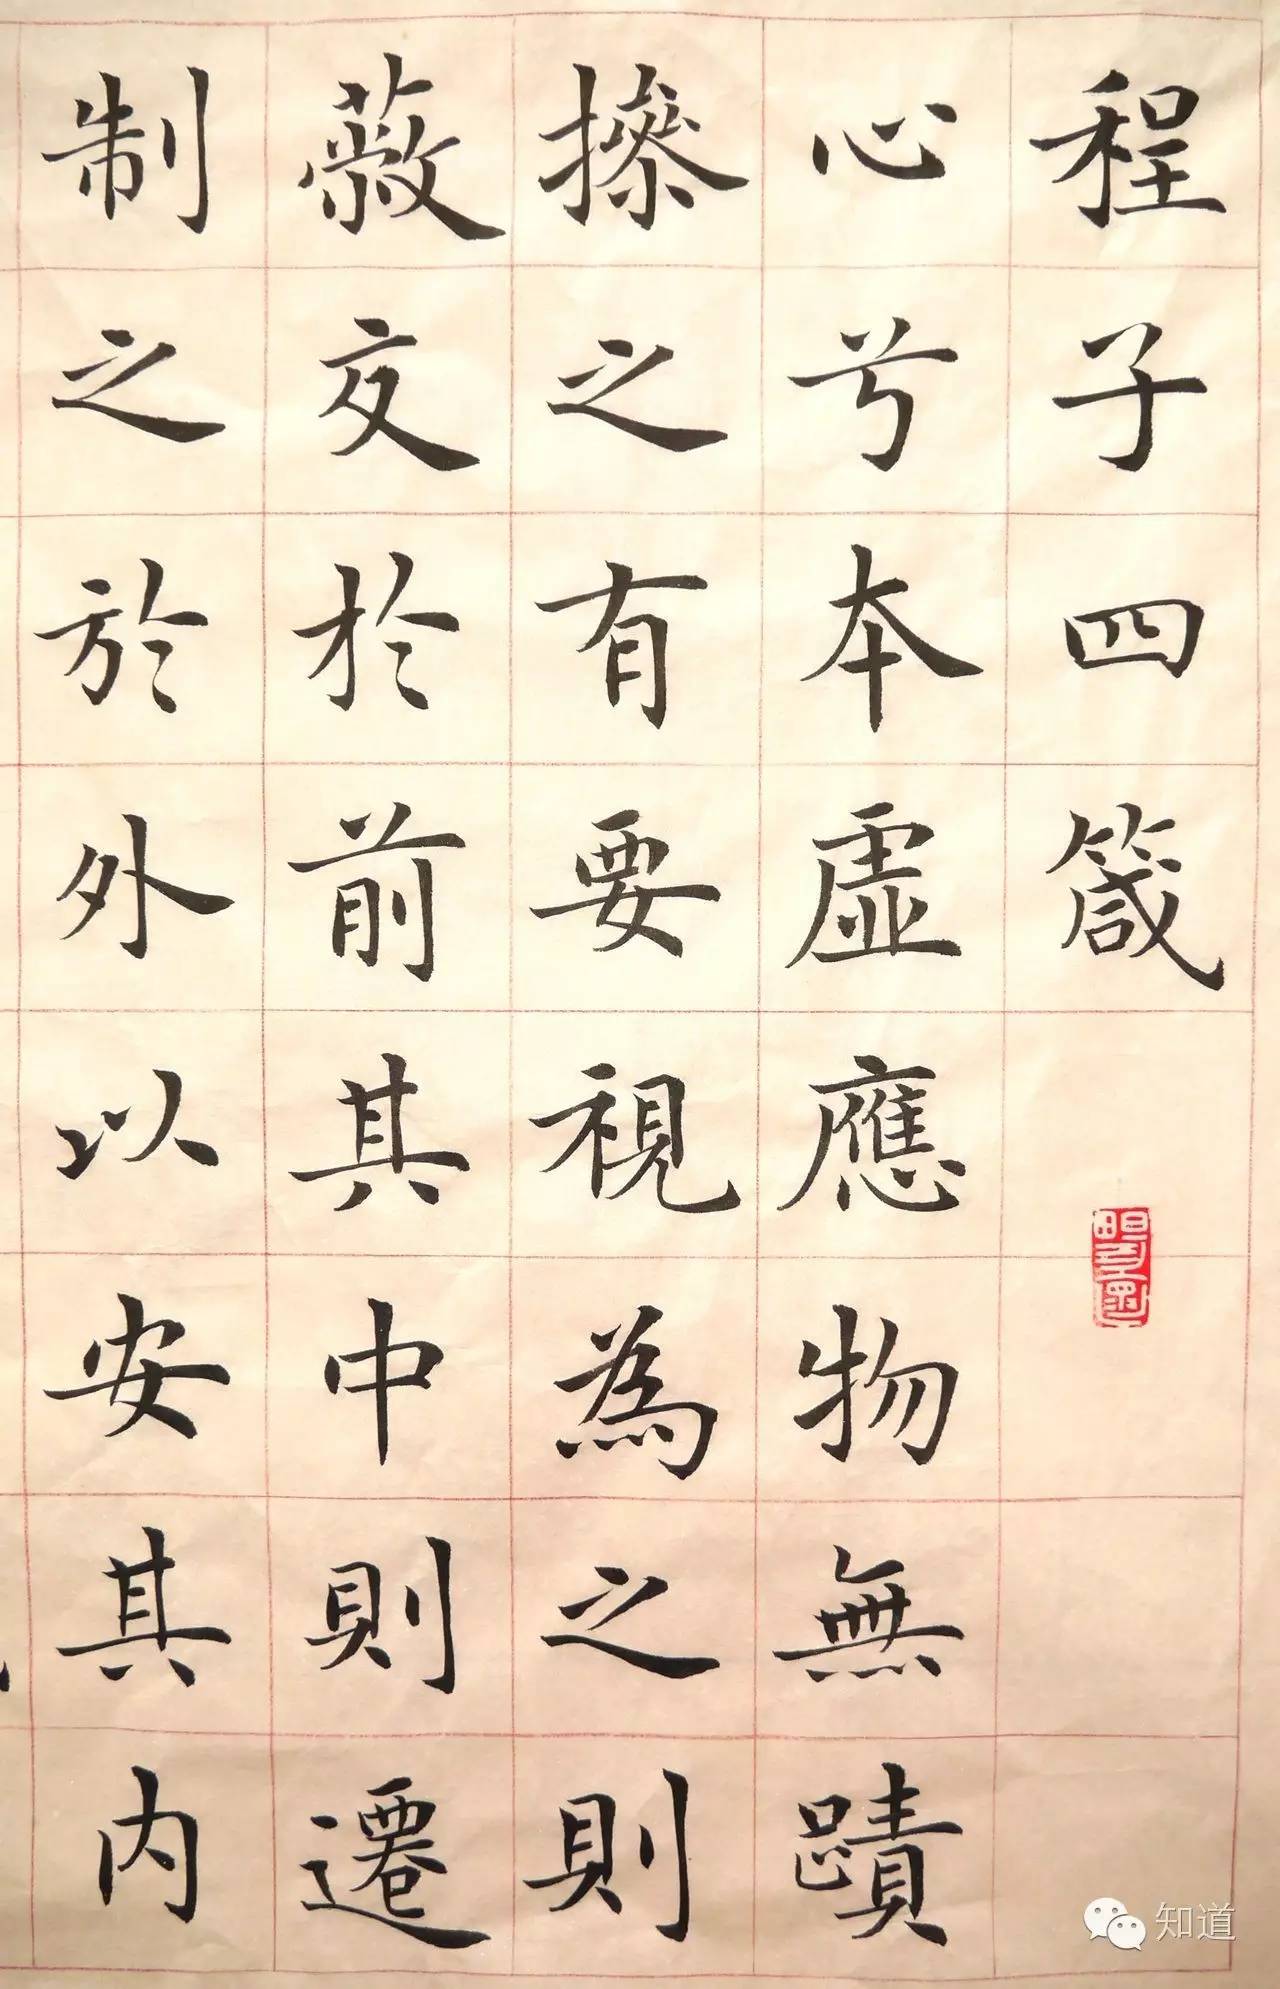 程子四箴
心兮本虛應物無蹟
操之有要視為之則
蔽交於前其中則遷
制之於外以安其內
知道